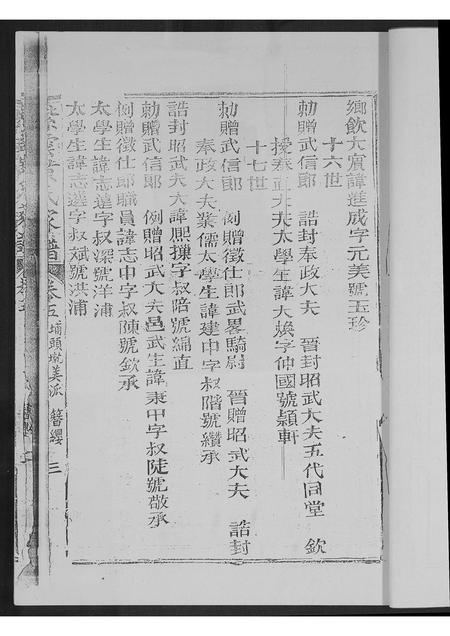 鄉飲大賔諱進威字元美號玉珍
十六世
勅贈武信郎 誥封奉政大夫 晉封昭武大夫五代同堂 欽
授奉直大夫太學生諱大煥字仲國號頴軒
十七世
勅贈武信郎 例贈徴仕郎武畧騎尉 晉贈昭武大夫 誥封
奉政大夫業儒太學生諱建中字叔階號纘承
誥封昭武大夫諱熙攘字叔陪號綿直
勅贈武信郎 例贈昭武大夫邑武生諱秉中字叔陡號敬承
例贈徴仕郎職員諱志中字叔陳號欽承
太學生諱志遠字叔深號洋浦
太學生諱志達字叔斌號洪浦
氏家譜 卷五 埔頭琥美派 簪纓 三